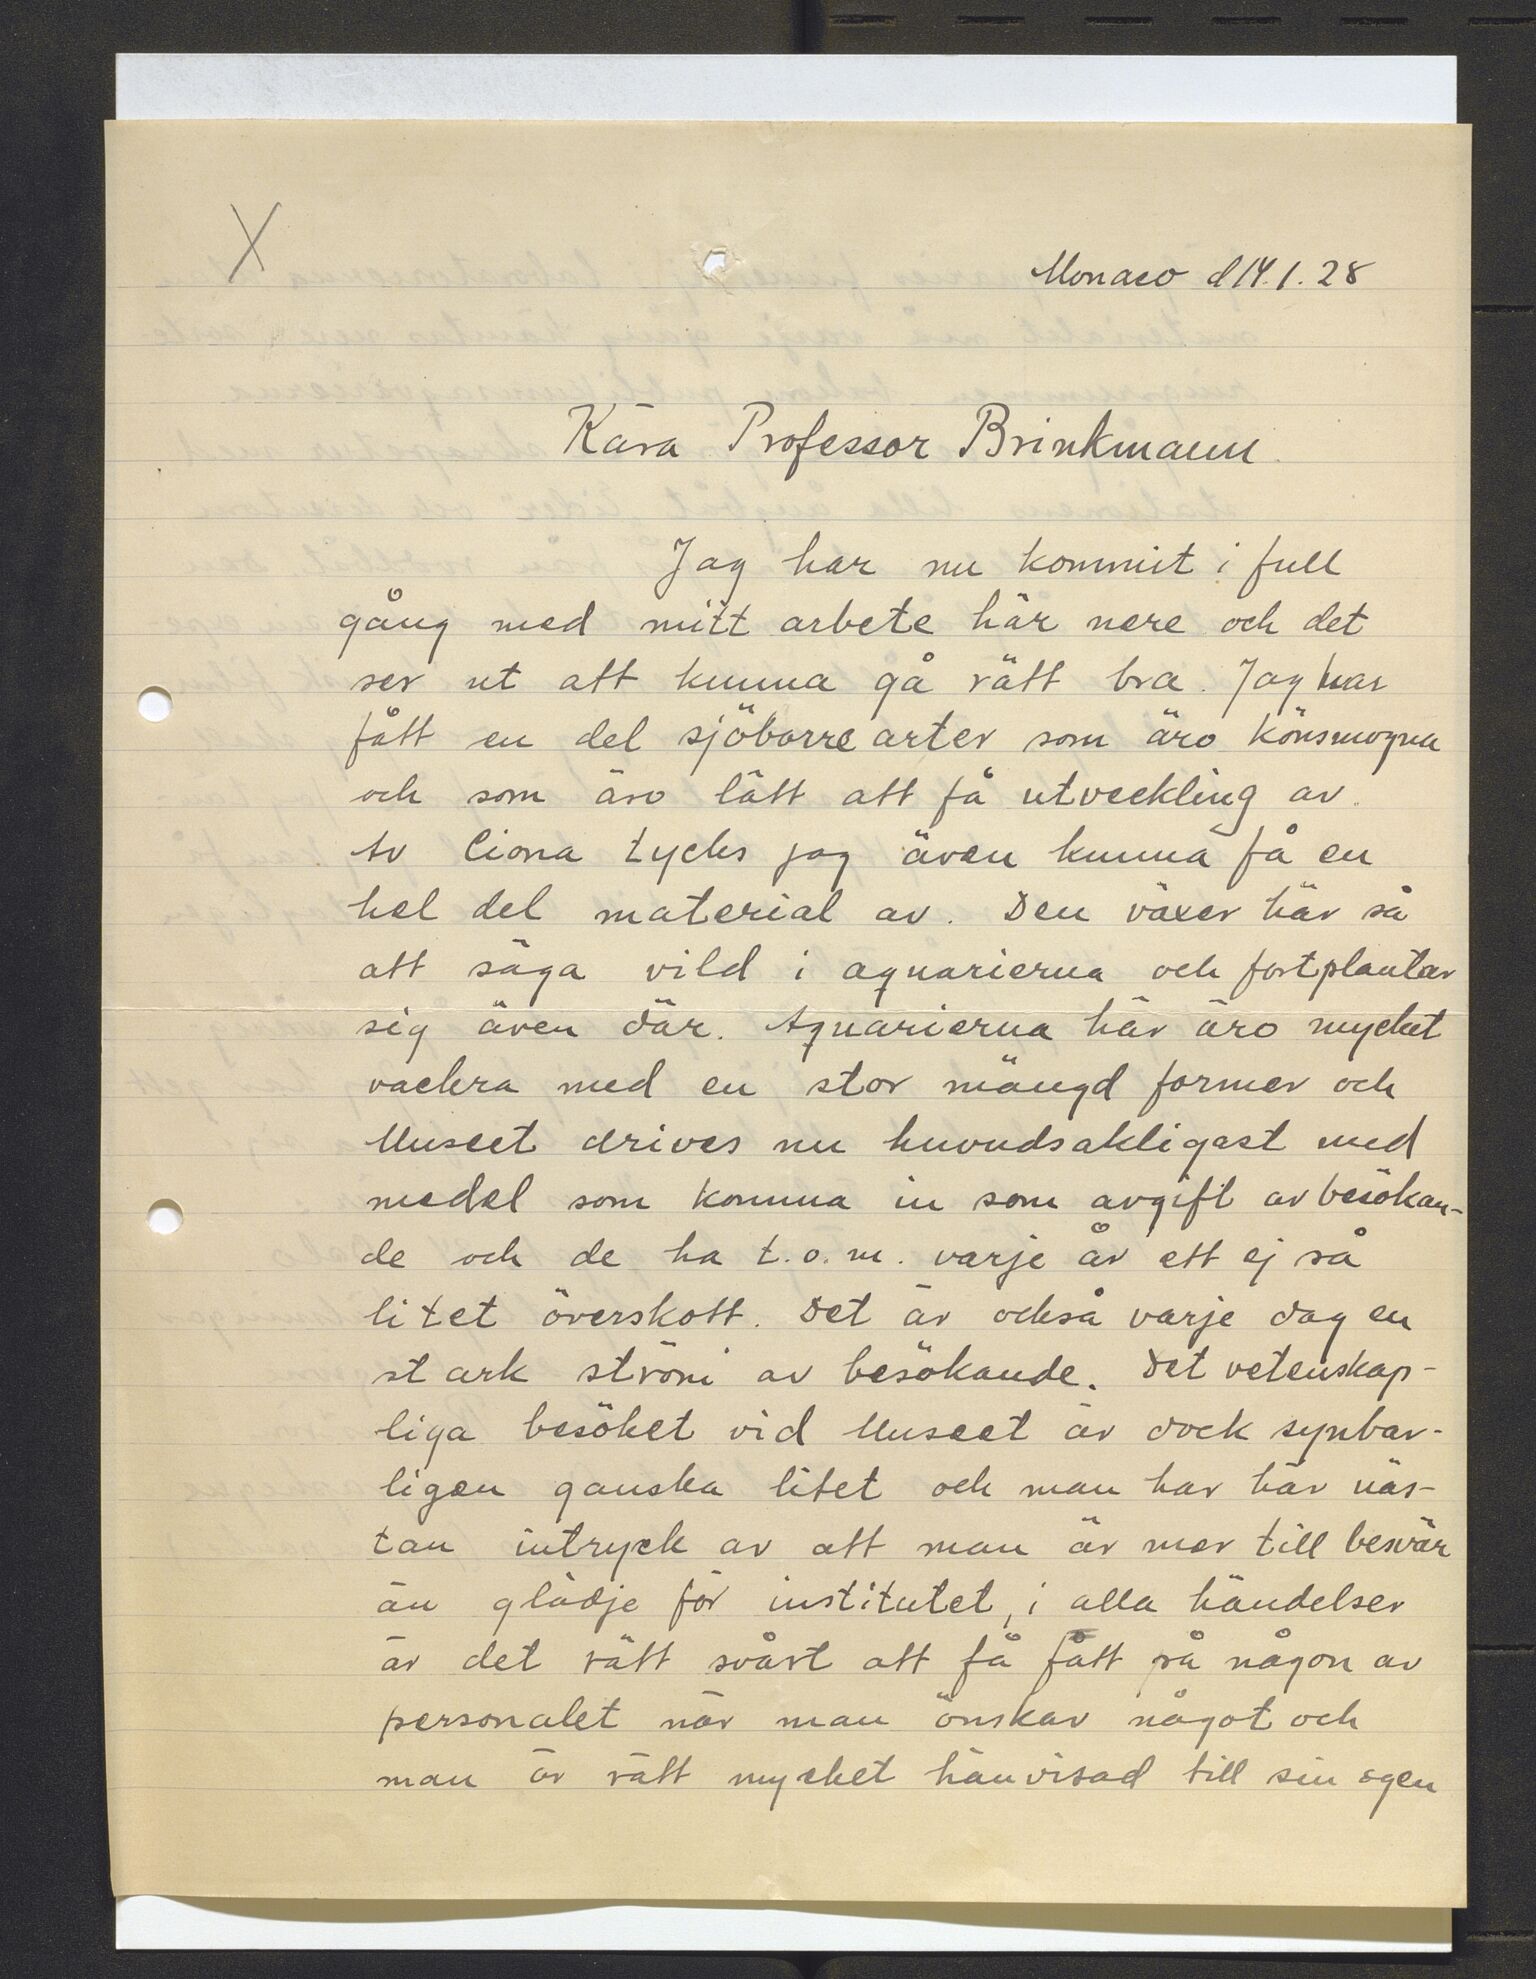 X
Monaco d 14.1.28
Kära Professor Brinkmann.
Jag har nu kommit i full
gång med mitt arbete här nere och det
ser ut att kunna gå rätt bra. Jag har
fått en del sjöborrearter som äro könsmogna
och som äro lätt att få utveckling av.
Av Ciona tycks jag även kunna få en
hel del material av. Den växer här så
att säga vild i aquarierna och fortplantar
sig även där. Aquarierna här äro mycket
vackra med en stor mängd former och
Museet drives nu huvudsakligast med
medel som komma in som avgift av besökan-
de och de ha t.o.m. varje år ett ej så
litet överskott. Det är också varje dag en
stark ström av besökande. Det vetenskap-
liga besöket vid Museet är dock synbar-
ligen ganska litet och man har här näs-
tan intryck av att man är mer till besvär
än glädje för institutet, i alla händelser
är det rätt svårt att få fått på någon av
personalet när man önskar något och
man är rätt mycket hänvisad till sin egen